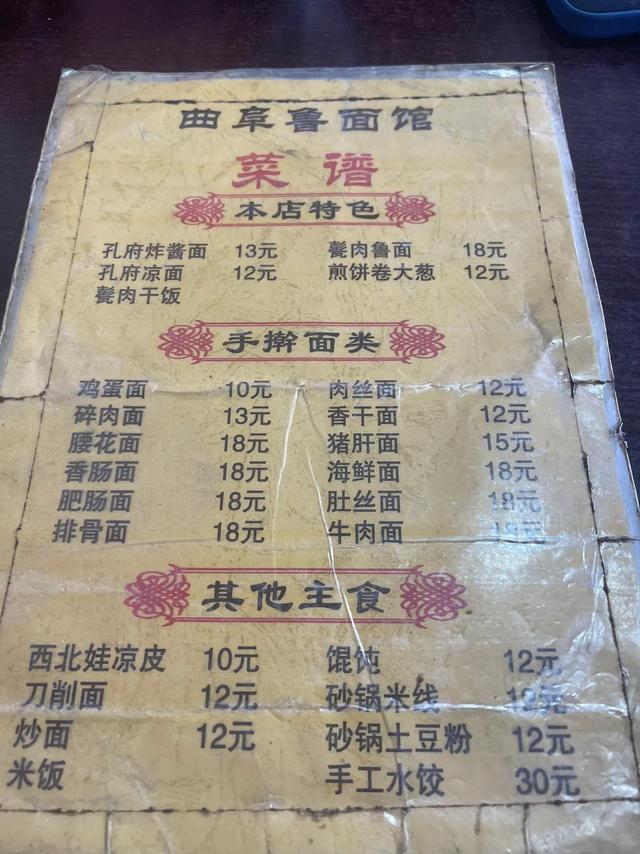 曲阜鲁面馆
菜谱
本店特色
孔府炸酱面 13元 甏肉鲁面 18元
孔府凉面 12元 煎饼卷大葱 12元
甏肉干饭
手擀面类
鸡蛋面 10元 肉丝面 12元
碎肉面 13元 香干面 12元
腰花面 18元 猪肝面 15元
香肠面 18元 海鲜面 18元
肥肠面 18元 肚丝面 18元
排骨面 18元 牛肉面 18元
其他主食
西北娃凉皮 10元 馄饨 12元
刀削面 12元 砂锅米线 12元
炒面 12元 砂锅土豆粉 12元
米饭 手工水饺 30元